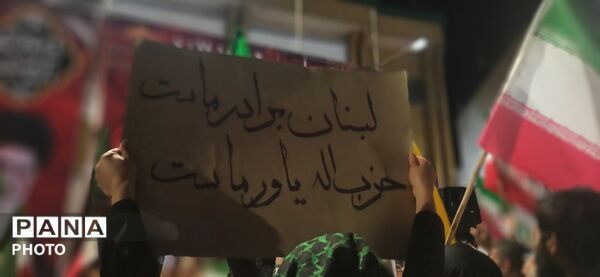 لبنان برادر ماست
حزب اله یاور ماست
PANA
PHOTO